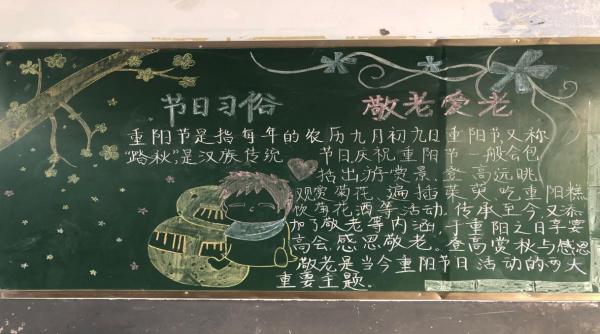 节日习俗 敬老爱老
重阳节是指每年的农历九月初九日重阳节又称
“踏秋”,是汉族传统 节日庆祝重阳节一般会包
括出游赏景、登高远眺
观赏菊花、遍插茱萸、吃重阳糕
饮菊花酒等活动,传承至今,又添
加了敬老等内涵,于重阳之日享宴
高会,感思敬老。登高赏秋与感恩
敬老是当今重阳节日活动的两大
重要主题。